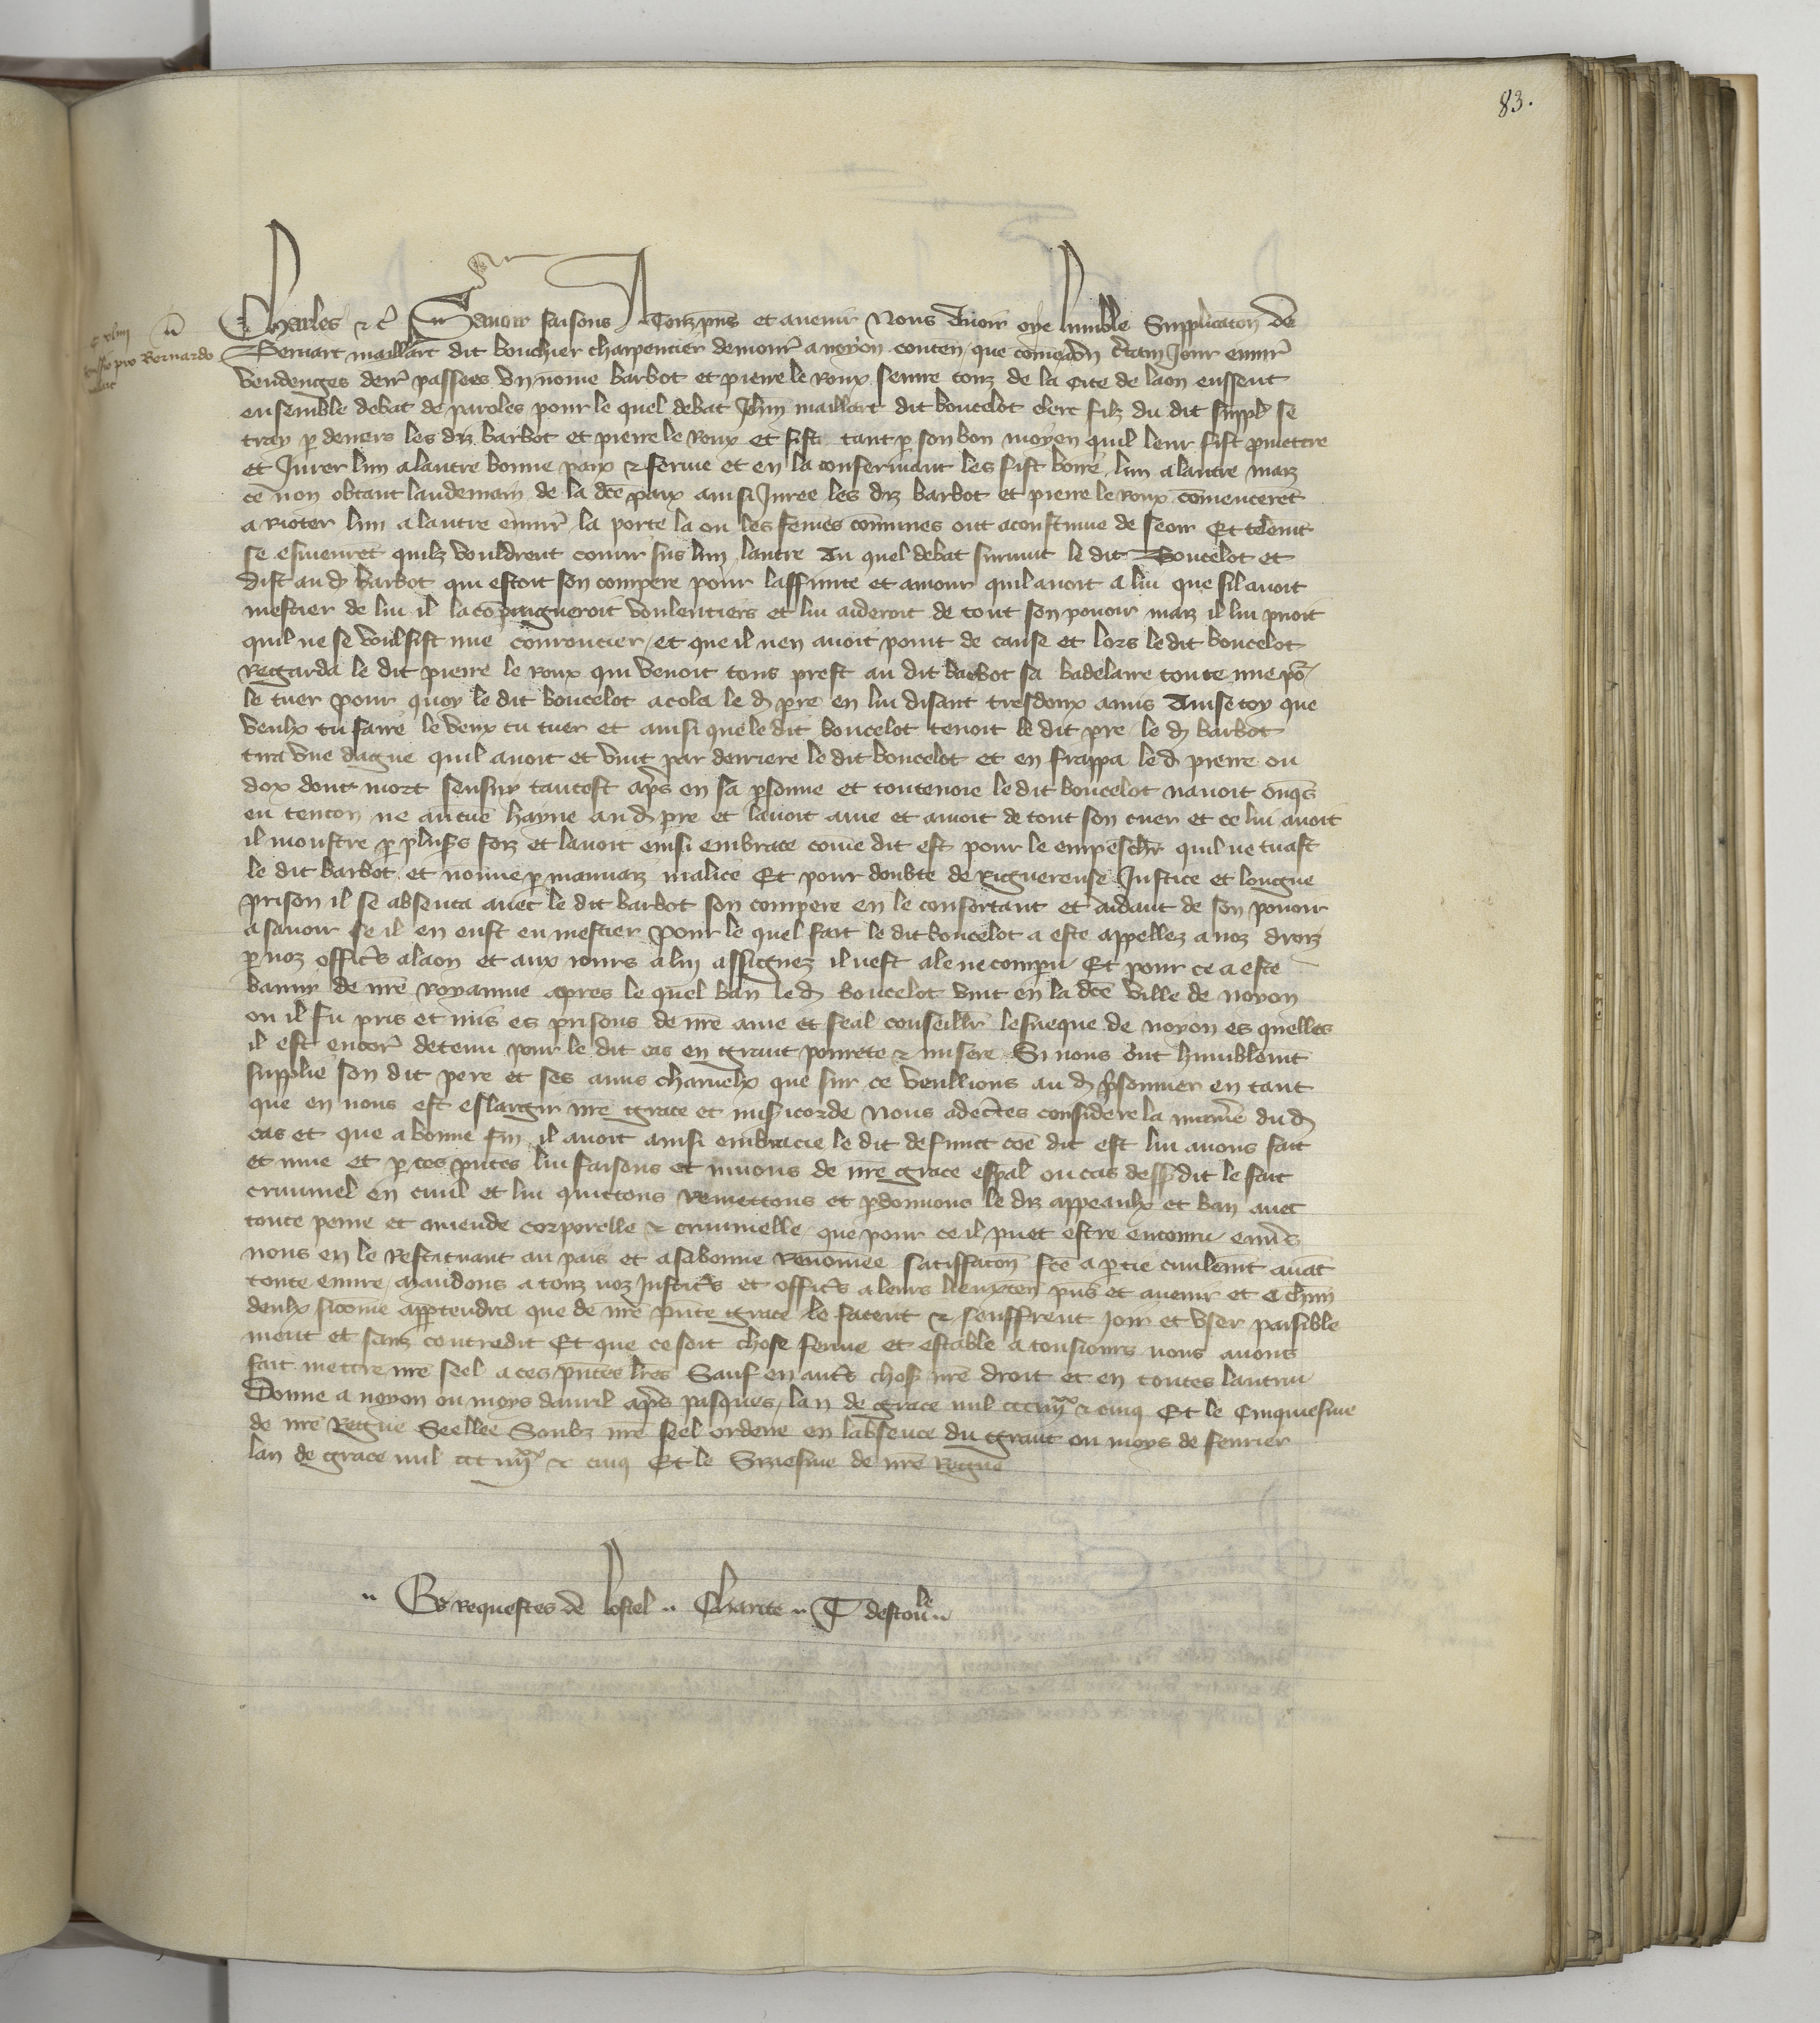 83.
C xliiij
Remissio pro Bernardo
Maillart
Charles &c̃ Savoir faisons A touz pñs et avenir Nous Avoir oye humble Supplicacoñ de
Bernart maillart dit bouchier charpentier demour̃ a noyon conteñ que comeadõn c̃tain Jour envir̃
vendenges derr̃ passees un nõme barbot et pierre le Roux serure touz de la cite de laon eussent
ensemble debat de paroles pour le quel debat Jehñ maillart dit boucelot clerc filz du dit suppl̃ se
tray p̱ devers les dz̃ barbot et pierre le Roux et fist tant p̱ son bon moyen quil leur fist p̱mettre
et Jurer lun a lautre bonne paix & ferme et en la confermant les fist boire lun a lautre maiz
ce non obstant landemain de la dc̃e paix ainsi Juree les dz̃ barbot et pierre le Roux cõmenceret̃
a Rioter lun a lautre envir̃ la porte la ou les fẽmes cõmunes ont acoustume de seoir Et telem̃t
se esmeuret̃ quilz vouldrent courir sus lun lautre Au quel debat survint le dit Boucelot et
dist au d̃ barbot qui estoit son compere pour laffinite et amour quil avoit a lui que sil avoit
mestier de lui il lacõpaigneroit voulentiers et lui aideroit de tout son povoir maiz il lui p̃oit
quil ne se voulsist mie courroucier / et que il nen avoit point de cause et lors le dit boucelot
Regarda le dit pierre le Roux qui venoit tous prest au dit barbot sa badelaire toute nue po᷑
le tuer pour quoy le dit boucelot acola le d̃ pr̃e en lui disant tresdoux amis Avise toy que
veulx tu faire le veux tu tuer et ainsi que le dit boucelot tenoit le dit pr̃e le d̃ barbot
tira une dague quil avoit et vint par derriere le dit boucelot et en frappa le d̃ pierre ou
dox dont mort sensuy tantost ap̃s en sa p̱sonne et toutevoie le dit boucelot navoit onq̃s
eu tencon ne aucũe hayne au d̃ pr̃e et lavoit ame et amoit de tout son cuer et ce lui avoit
il monstre p̱ plus̃s foiz et lavoit ensi embrace cõme dit est pour le empesch̃r quil ne tuast
le dit barbot et nõmie p̱ mauvaiz malice Et pour doubte de Rigueureuse Justice et longue
prison il se absenta avec le dit barbot son compere en le confortant et aidant de son povoir
a savoir se il en eust eu mestier pour le quel fait le dit boucelot a este appellez a noz droiz
p̱ noz offic̃s a laon et aux iours a lui assignez il nest ale ne compru Et pour ce a este
banny de nr̃e Royaume apres le quel ban le d̃ boucelot vint en la dc̃e ville de noyon
ou il fu pris et mis es prisons de nr̃e ame et feal conseillr̃ levesque de noyon es quelles
il est encor̃ detenu pour le dit cas en grant povrete & misere Si nous ont humblem̃t
supplie son dit pere et ses amis charnelx que sur ce veullions au d̃ p̱sonnier en tant
que en nous est eslargir nr̃e grace et mis̃icorde Nous adec̃tes considere la manir̃e du d̃
cas et que a bonne fin il avoit ainsi embracie le dit defunct cõe dit est lui avons fait
et mue et p̱ ces p̃ntes lui faisons et muons de nr̃e grace esp̃al ou cas dess᷑dit le fait
criminel en civil et lui quictons Remettons et p̱donnons le dz̃ appeaulx et ban avec
toute peine et amende corporelle & criminelle que pour ce il puet estre encouru env̱s
nous en le Restituant au pais et a sa bonne Renõmee satisfacoñ fc̃e a p̱tie civilem̃t avãt
toute euvre / Mandons a touz noz Justic̃s et offic̃s a leurs lieuxteñ p̃ns et avenir et a ch̃un
deulx sicõme app̱tendra que de nr̃e p̃nte grace le facent & seuffrent Joir et user paisible
ment et sanz contredit Et que ce soit chose ferme et estable a tousiours nous avons
fait mettre nr̃e seel a ces p̃ntes lr̃es Sauf en aut̃s chos̃ nr̃e droit et en toutes lautrui
Donne a noyon ou moys davril ap̃s pasques / lan de grace mil ccc iiij^xx & cinq Et le Cinquiesme
de nr̃e Regne Seellee Soubz nr̃e seel ordene en labsence du grant ou moys de fevrier
lan de grace mil ccc iiij^xx & cinq Et le Siziesme de nr̃e Regne
Es requestes de lostel .. Charite .. T destouvle ..